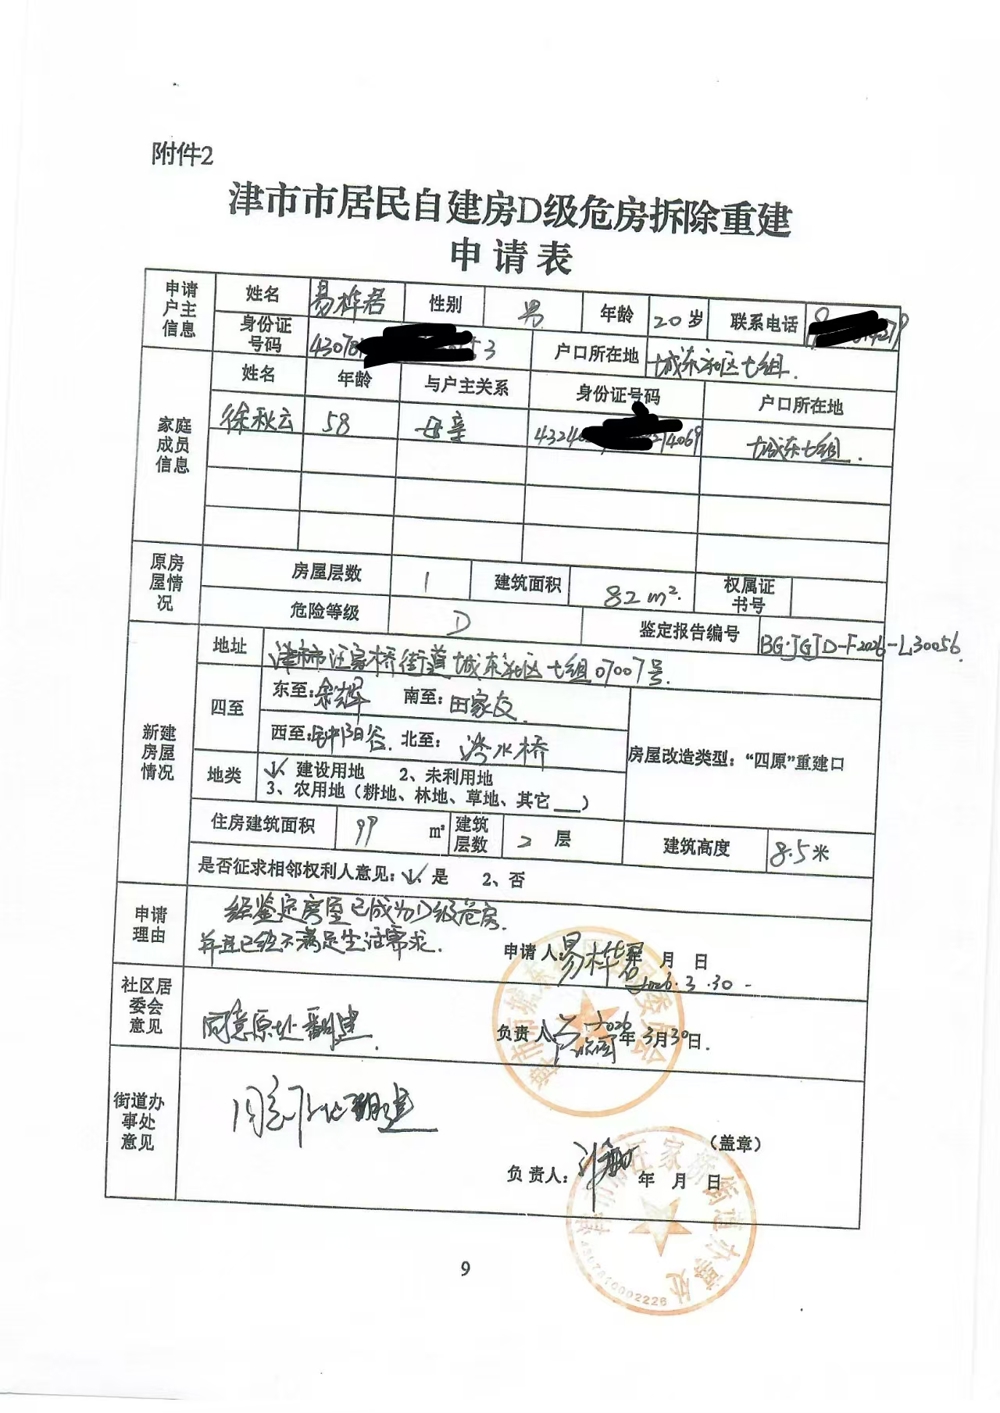 附件2
津市市居民自建房D级危房拆除重建
申请表
申请户主信息 姓名 易桦君 性别 男 年龄 20岁 联系电话
身份证号码 43070 53 户口所在地 城东社区七组.
家庭成员信息 姓名 年龄 与户主关系 身份证号码 户口所在地
徐秋云 58 母亲 4324 4069 城东七组.
原房屋情况 房屋层数 1 建筑面积 82m². 权属证书号
危险等级 D 鉴定报告编号 BG·JGJD-F2026-L30056.
新建房屋情况 地址 津市市汪家桥街道城东社区七组07007号.
四至 东至: 南至: 田家友.
西至: 北至: 桥 房屋改造类型: “四原”重建口
地类 1、建设用地 2、未利用地
3、农用地（耕地、林地、草地、其它___）
住房建筑面积 99 ㎡ 建筑层数 2 层 建筑高度 8.5米
是否征求相邻权利人意见: 1、是 2、否
申请理由 经鉴定房屋已成为D级危房.
并且已经不满足生活需求.
申请人: 易桦君 年 月 日
2026.3.30.
社区居委会意见 同意原址翻建.
负责人 2026年3月30日.
街道办事处意见 同意原址翻建
（盖章）
负责人: 年 月 日
津市市汪家桥街道办事处
9